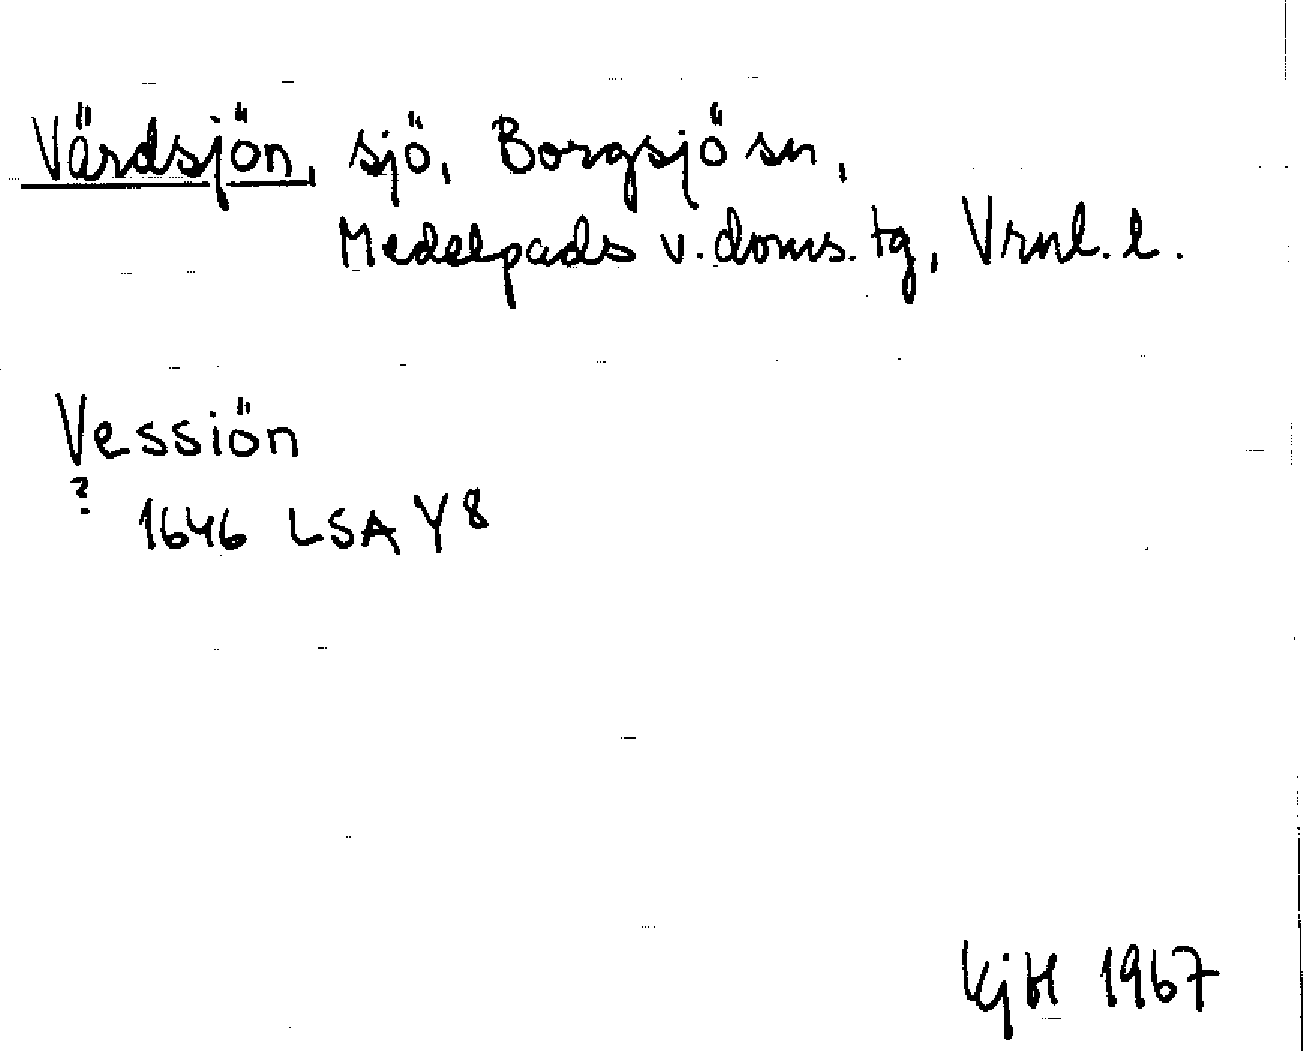 Värdsjön, sjö, Borgsjö sn,
Medelpads v. doms. tg, Vrnl. l.
Vessiön
? 1646 LSA Y8
KjH 1967